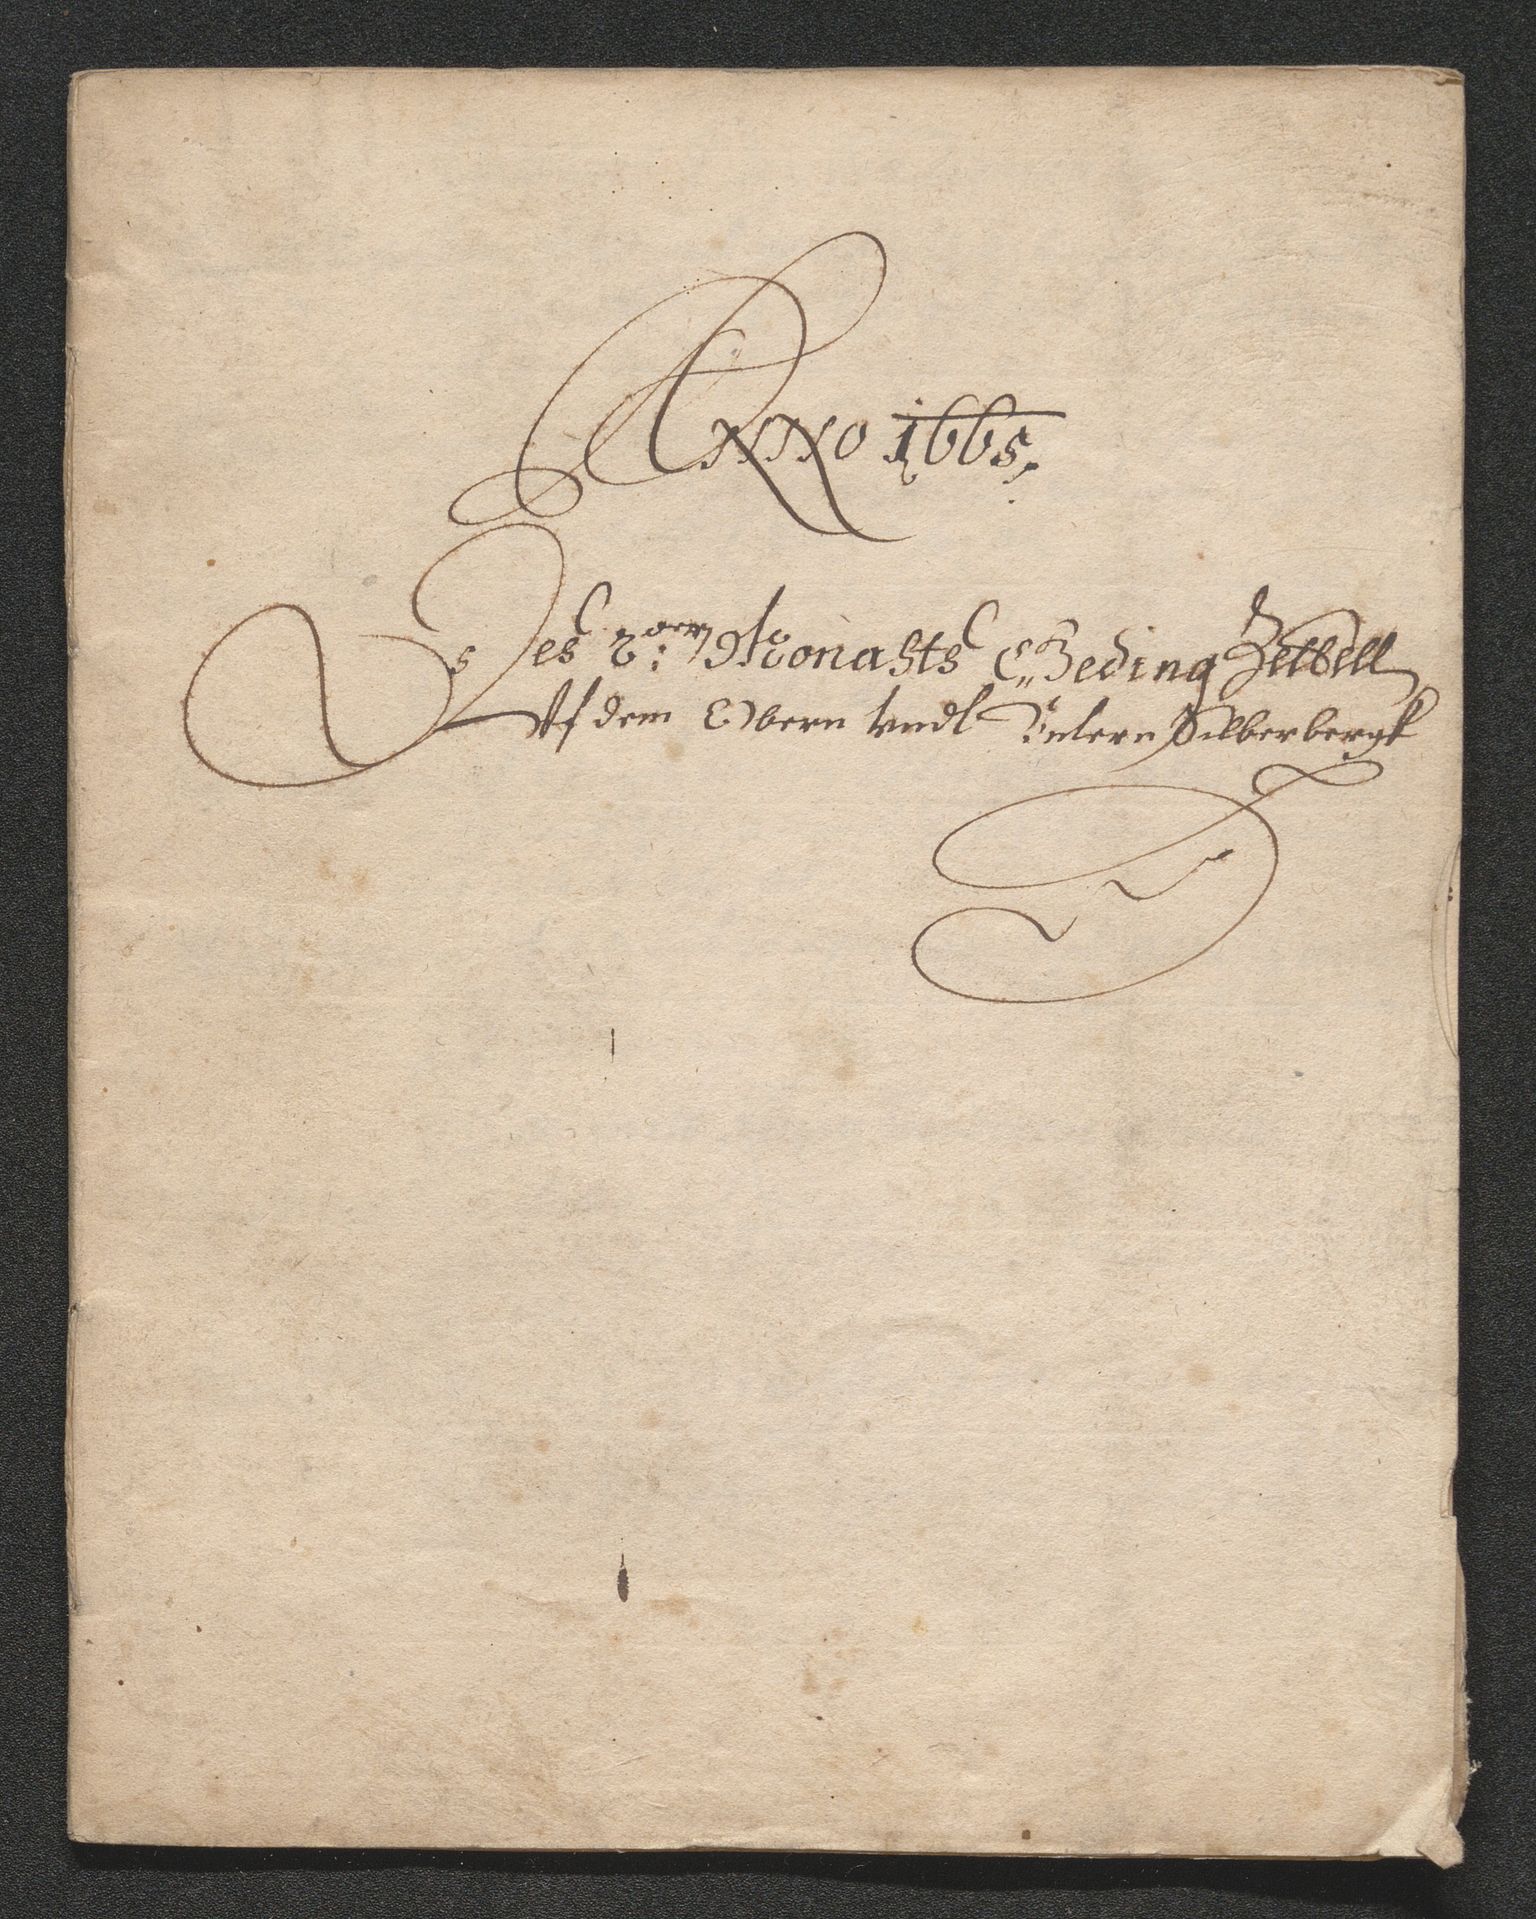 ANNO 1665.
Des 2: ten Monahts Geding Zettell
Vf dem Obern vndt Vntern Silberbergk